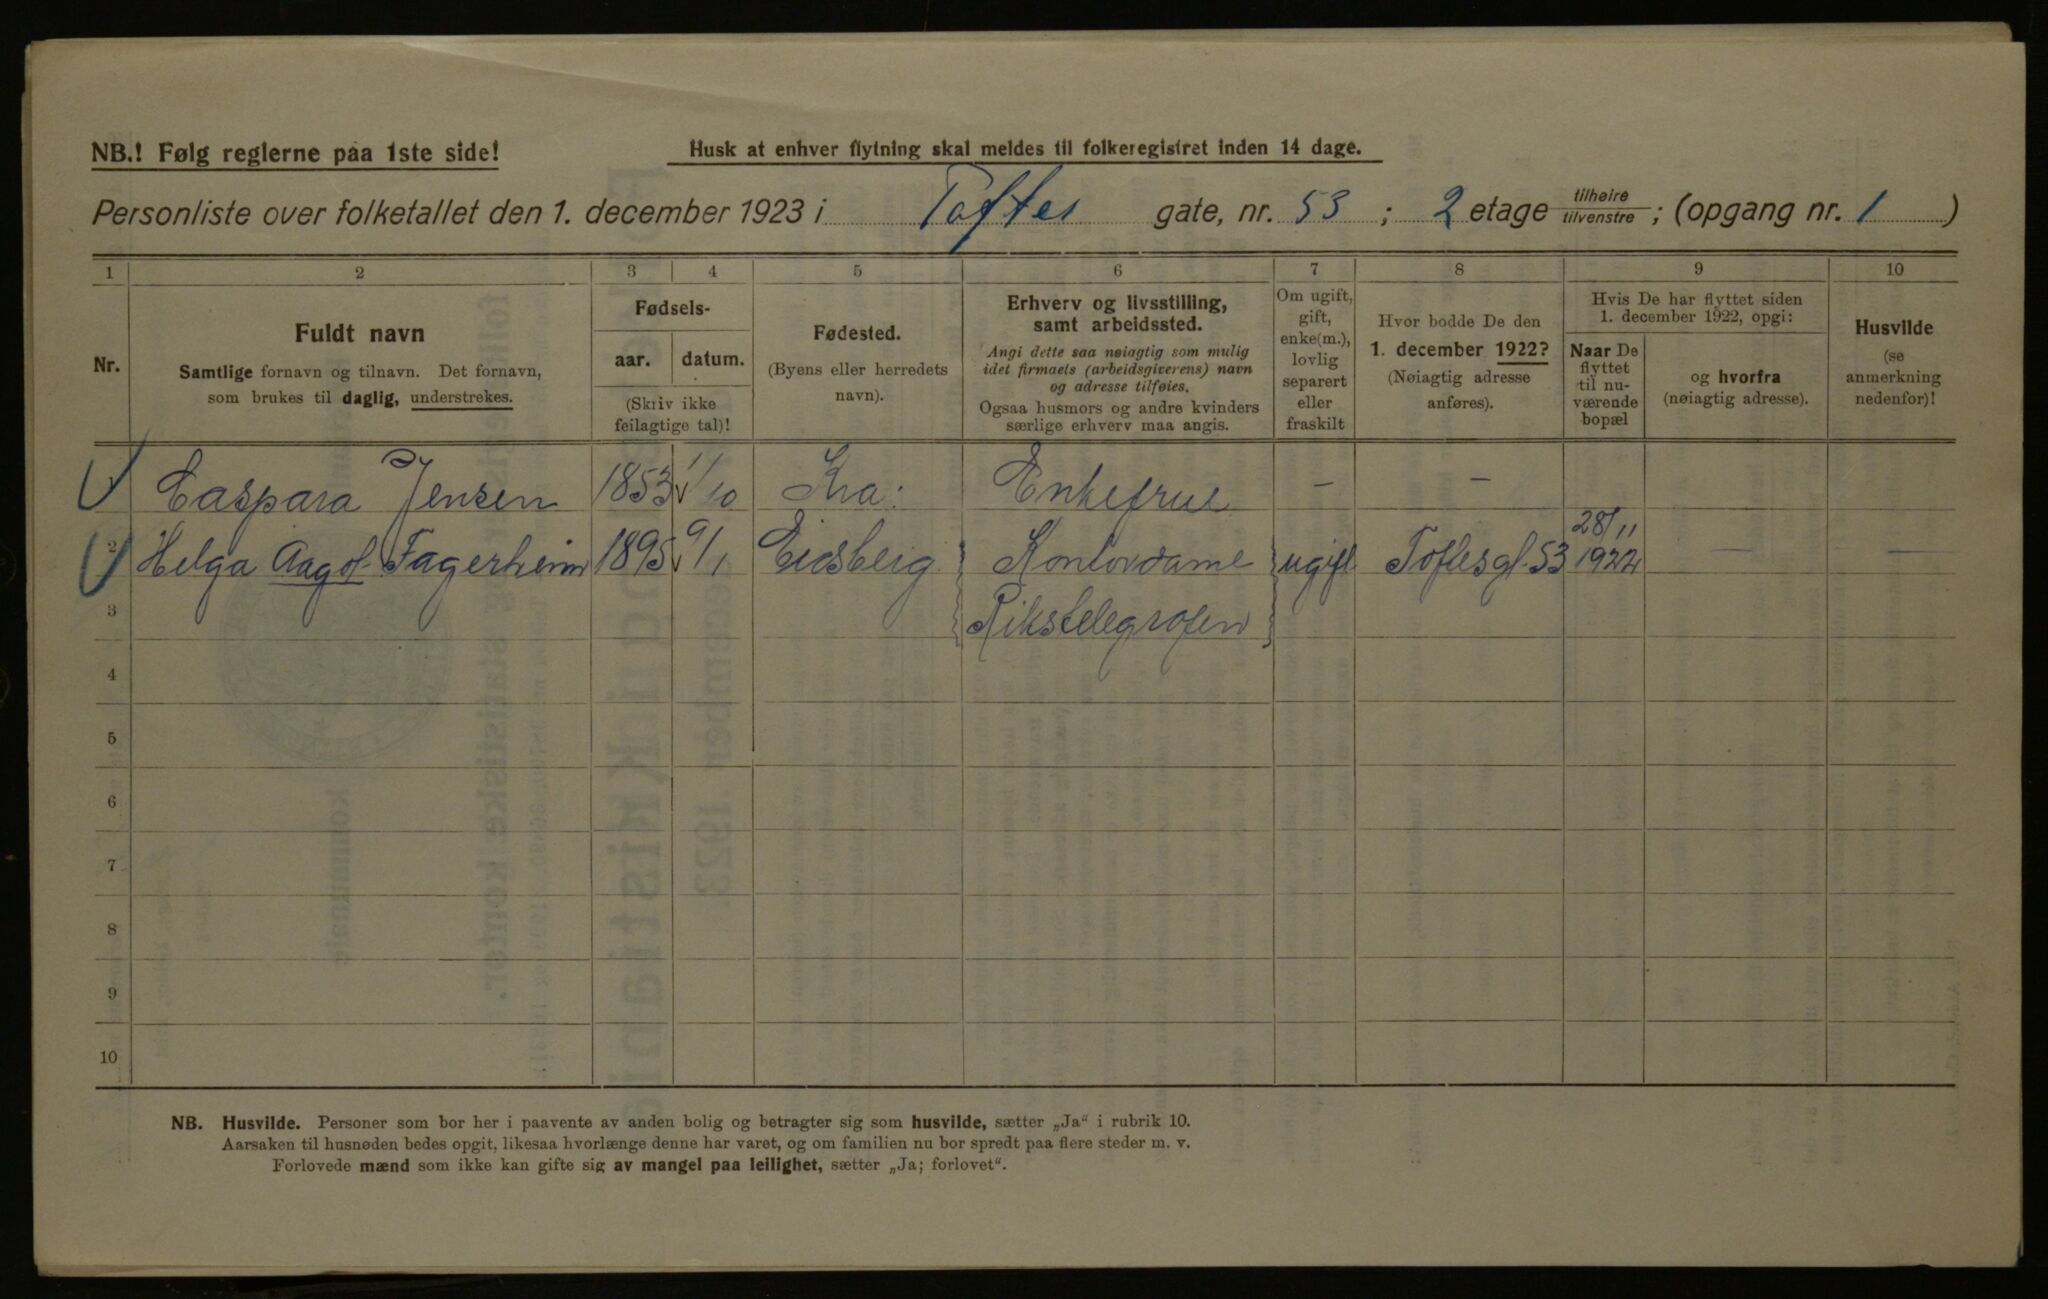 NB.! Følg reglerne paa 1ste side!
Husk at enhver flytning skal meldes til folkeregistret inden 14 dage.
Personliste over folketallet den 1. december 1923 i Toftes gate, nr. 53 ; 2 etage tilhøire tilvenstre ; (opgang nr. 1 )
1 2 3 4 5 6 7 8 9 10
Nr.
Fuldt navn
Samtlige fornavn og tilnavn. Det fornavn,
som brukes til daglig, understrekes.
Fødsels-
aar. datum.
(Skriv ikke
feilagtige tal)!
Fødested.
(Byens eller herredets
navn).
Erhverv og livsstilling,
samt arbeidssted.
Angi dette saa nøiagtig som mulig
idet firmaels (arbeidsgiverens) navn
og adresse tilføies.
Ogsaa husmors og andre kvinders
særlige erhverv maa angis.
Om ugift,
gift,
enke(m.),
lovlig
separert
eller
fraskilt
Hvor bodde De den
1. december 1922?
(Nøiagtig adresse
anføres).
Hvis De har flyttet siden
1. december 1922, opgi:
Naar De
flyttet
til nu-
værende
bopæl
og hvorfra
(nøiagtig adresse).
Husvilde
(se
anmerkning
nedenfor)!
Caspara Jensen 1853 1/10 Kra: Enkefrue – –
2 Helga Aagot Fagerheim 1895 9/1 Eidsberg Kontordame ugift Toftesgt. 53 28/11 1922 – –
3 Rikstelegrafen
4
5
6
7
8
9
10
NB. Husvilde. Personer som bor her i paavente av anden bolig og betragter sig som husvilde, sætter „Ja“ i rubrik 10.
Aarsaken til husnøden bedes opgit, likesaa hvorlænge denne har varet, og om familien nu bor spredt paa flere steder m. v.
Forlovede mænd som ikke kan gifte sig av mangel paa leilighet, sætter „Ja; forlovet“.